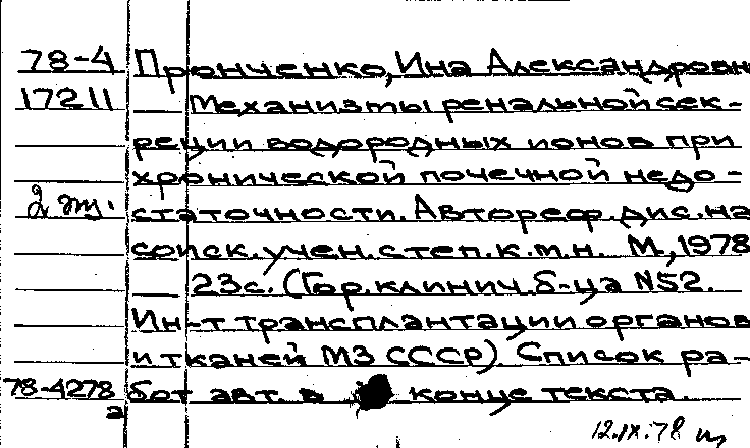 78-4 Пронченко, Ина Александровн
17211 Механизмы ренальной сек-
реции водородных ионов при
хронической почечной недо-
2 эк. статочности. Автореф. дис. на
соиск. учен. степ. к.м.н. М., 1978
23с. (Гор. клинич. б-ца N52.
Ин-т трансплантации органов
и тканей МЗ СССР). Список ра-
78-4278 бот авт. в конце текста.
а
12.IX.78